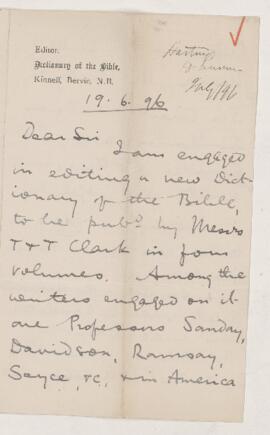 Editor.
Dictionary of the Bible.
Kinneff, Bervie, N.B.
July/96
19.6.96
Dear Sir
I am engaged
in editing a new Dict-
ionary of the Bible,
to be pubd by Messrs
T & T Clark in four
volumes. Among the
writers engaged on it
are Professors Sanday,
Davidson, Ramsay,
Sayce, &c, & in America